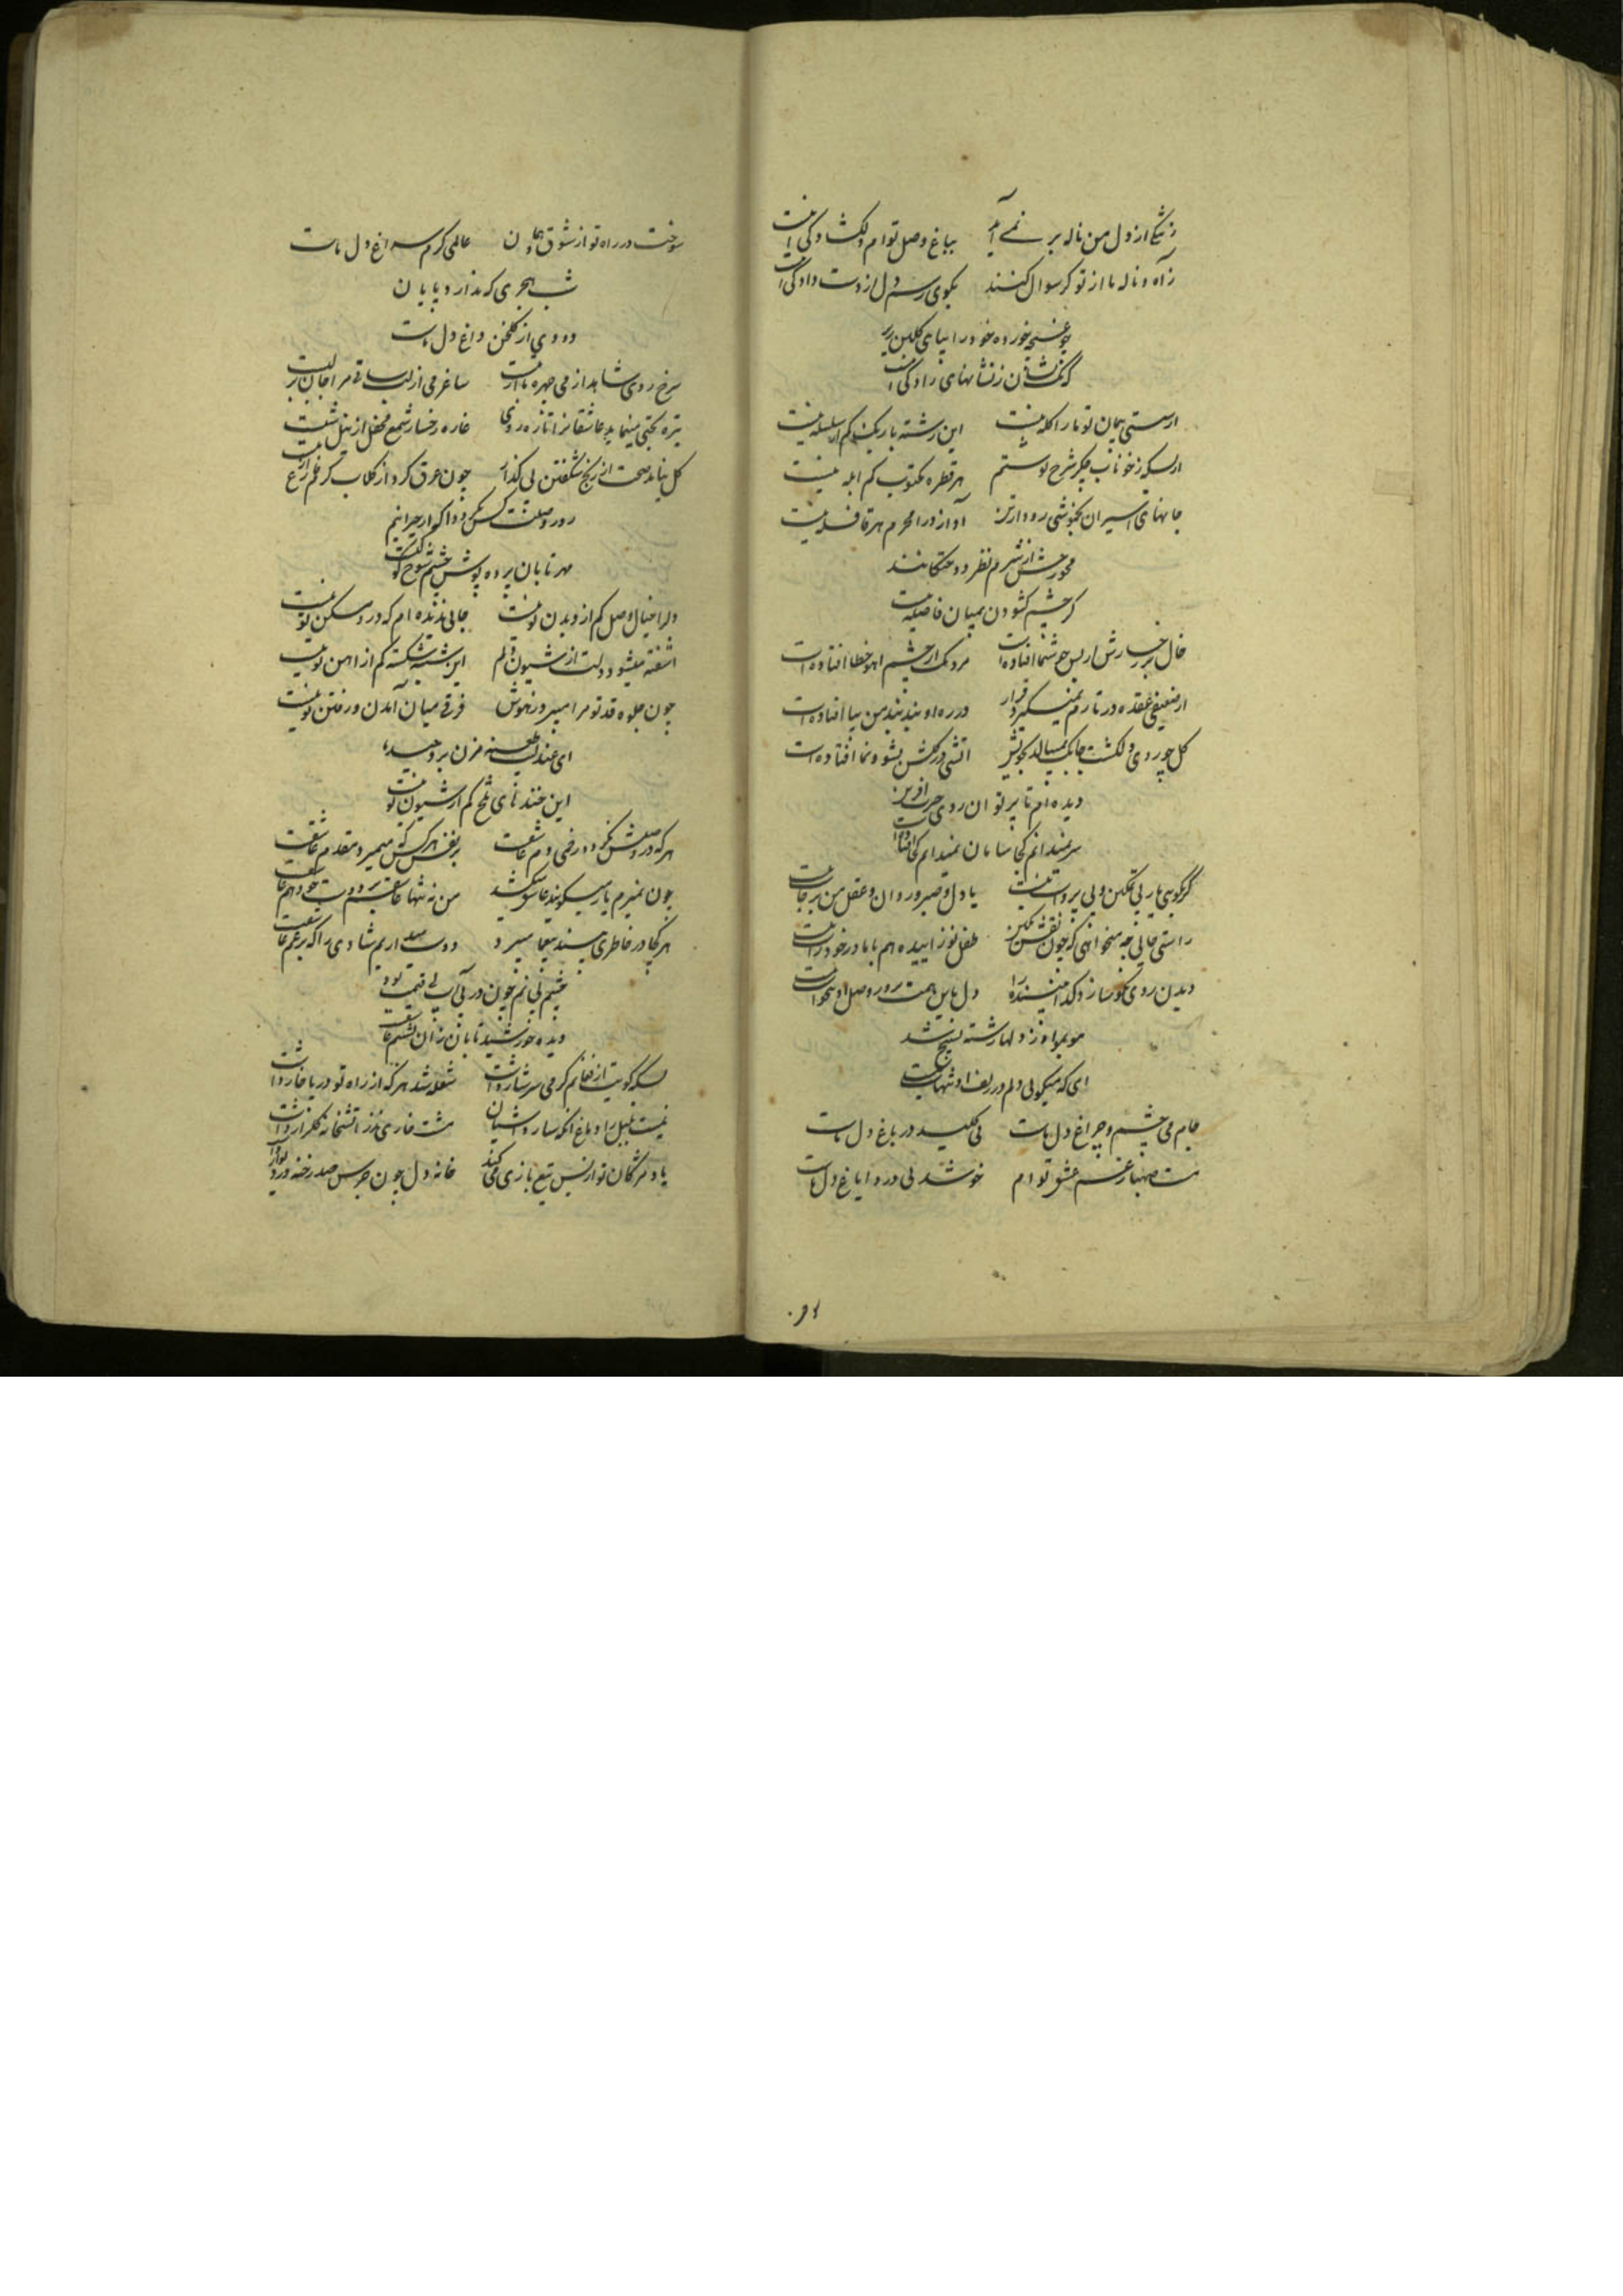 ز تنگی از دل من ناله بر نمی آید بباغ وصل توام دلگشادگی اینست
ز آه و ناله ما از تو گر سوال کنند بگوی رسم دل از دست دادگی اینست
چو غنچه خورده خود را بپای گلبن ریز
که نشان ز نشانهای زادگی اینست
از سستی پیمان تو ما را گله نیست این رشته باریک کم از سلسله نیست
از بسکه ز خوناب جگر شرح نوشتم هر قطره مکتوب کم از آبله نیست
جانهای اسیران بخموشی رود از تن آواز درا محرم هر قافله نیست
از شرم نظر دوختگانند
گر چشم گشودن بمیان فاصله نیست
خال بر رخسارش از بس خوشنما افتاده است مردمک از چشم آهو خطا افتاده است
از ضعیفی عقده در تارم نمیگیرد قرار در ره او بند بندمن بپا افتاده است
گل چو روی دلکشت میبالد بخویش آتشی در گلشن نشو و نما افتاده است
دیده ام تا پرتو آن روی
سر نمیدانم کجا سامان نمیدانم کجا افتاده است
گر بگویی یار بی تمکین و بی پرواست نیست یا دل و صبر و روان و عقل من برجاست نیست
راستی جانی چه میخواهی که چون نقش نگین طفل نوزاییده هم با مادر خود راست نیست
دیدن روی نکو سازد گدا بیننده را دل باین همت بروز وصل او میخواست نیست
مو بمو از دلها رشته تسبیح شد
ای که میگویی دلم در زلف او تنهاست نیست
جام می چشم و چراغ دل ماست می کلید در باغ دل ماست
مست صهبا غم عشق توام خوشدلی درد ایاغ دل ماست
سوخت در راه تو از شوق عالمی گرم سراغ دل ماست
شب هجری که ندارد پایان
دودی از گلخن داغ دل ماست
سرخ روی شاهد از می چهره ما ساغر می از لب ساقی مرا جان بر لب است
تیره بختی مینماید عاشقانرا تازه روی غازه رخسار شمع محفل از نیل شب است
گل نیابد صحت از رنج شگفتن بی گداز چون عرق کرد از گلاب گرم
روز وصلت کس نگردد آگه از حیرانیم
مهر تابان پرده پوش چشم شوخ کوکب است
دلرا خیال وصل کم از دیدن تو نیست جایی ندیده ام که در و مسکن تو نیست
آشفته میشود دلت از شیون دلم این شیشه شکسته کم از آهن تو نیست
چون جلوه قد تو مرا میبرد ز هوش فرقی میان آمدن و رفتن تو نیست
ای عندلیب طعنه مزن بر
این خندهای تلخ کم از شیون تو نیست
هر که در وصلش نگردد راضی و غم عاشقست بر نفس هر کس که میمیرد مقدم عاشقست
چون نمیرم یار میگویند عاشق میکشد من نه تنها عاشقم بر دوست خود هم عاشقست
هر کجا در خاطری دوست میداریم شادی را که بر غم عاشقست
چشم بی نم چون در بی آب بی قیمت بود
دیده خورشید تابان زان بشبنم عاشقست
بسکه کویت از فغانم گرمی سرشار داشت شعله شد هر که از راه تو در پا خار داشت
نیست بلبل را دماغ آنکه سازد آشیان مشت خاری نذر آتشخانه گلزار داشت
یاد مژگان تو از بس تیغ بازی می کند خانه دل چون جرس صد رخنه در دیوار داشت